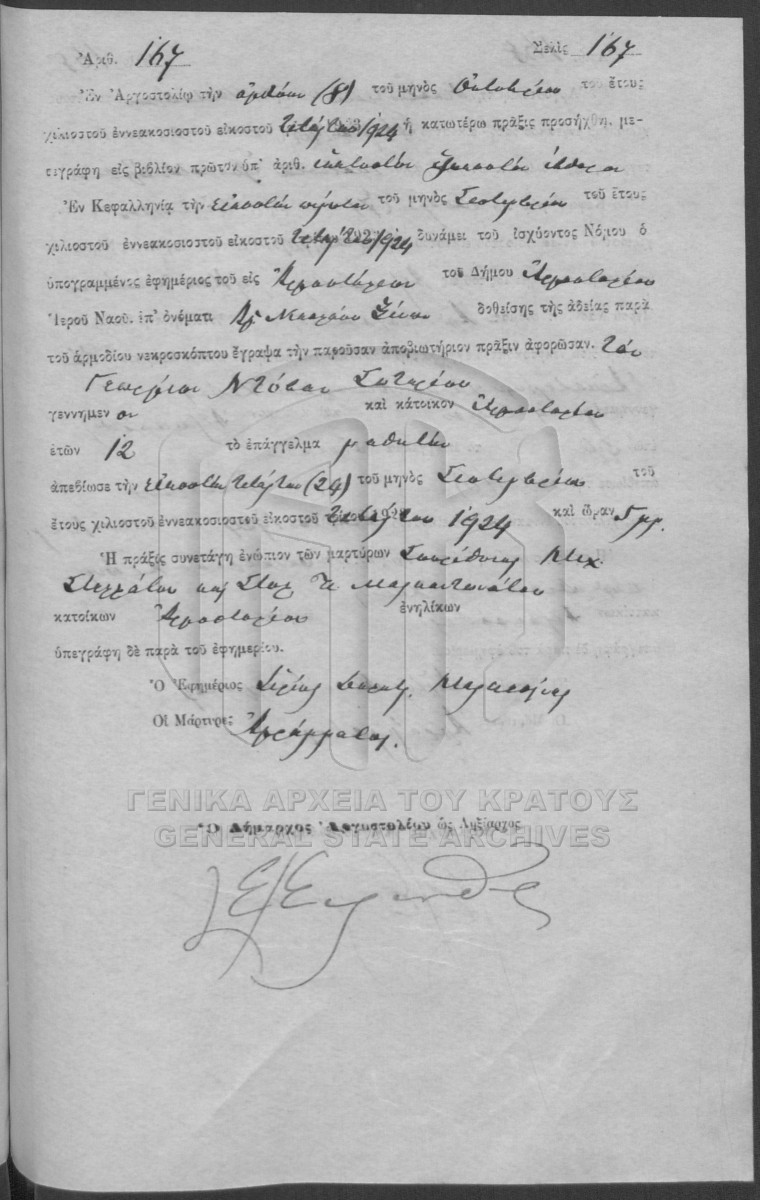 Ἀριθ. 167 Σελὶς 167
Ἐν Ἀργοστολίῳ τὴν ὀγδόην (8) τοῦ μηνὸς Ὀκτωβρίου τοῦ ἔτους
χιλιοστοῦ ἐννεακοσιοστοῦ εἰκοστοῦ τετάρτου 1924 ἡ κατωτέρω πρᾶξις προσήχθη. με-
τεγράφη εἰς βιβλίον πρῶτον ὑπ' ἀριθ. ἑκατοστὸν ἑξηκοστὸν ἕβδομον
Ἐν Κεφαλληνίᾳ τὴν εἰκοστὴν πέμπτην τοῦ μηνὸς Σεπτεμβρίου τοῦ ἔτους
χιλιοστοῦ ἐννεακοσιοστοῦ εἰκοστοῦ τετάρτου 1924 δυνάμει τοῦ ἰσχύοντος Νόμου ὁ
ὑπογραμμένος ἐφημέριος τοῦ εἰς Ἀργοστόλιον τοῦ Δήμου Ἀργοστολίου
Ἱεροῦ Ναοῦ. ἐπ' ὀνόματι Ἁγ. Νικολάου Ξένων δοθείσης τῆς ἀδείας παρὰ
τοῦ ἁρμοδίου νεκροσκόπτου ἔγραψα τὴν παροῦσαν ἀποβιωτήριον πρᾶξιν ἀφορῶσαν. τὸν
Γεώργιον Ντόβαν Σωτηρίου
γεννημεν ον καὶ κάτοικον Ἀργοστολίου
ἐτῶν 12 τὸ ἐπάγγελμα μαθητὴν
ἀπεβίωσε τὴν εἰκοστὴν τετάρτην (24) τοῦ μηνὸς Σεπτεμβρίου τοῦ
ἔτους χιλιοστοῦ ἐννεακοσιοστοῦ εἰκοστοῦ τετάρτου 1924 καὶ ὥραν 5 μμ.
Ἡ πρᾶξις συνετάγη ἐνώπιον τῶν μαρτύρων Σπυρίδωνος
καὶ
κατοίκων Ἀργοστολίου ἐνηλίκων
ὑπεγράφη δὲ παρὰ τοῦ ἐφημερίου.
Ὁ Ἐφημέριος
Οἱ Μάρτυρες Ἀγράμματοι.
ΓΕΝΙΚΑ ΑΡΧΕΙΑ ΤΟΥ ΚΡΑΤΟΥΣ
Ὁ Δήμαρχος Ἀργοστολίου ὡς Ληξίαρχος
GENERAL STATE ARCHIVES